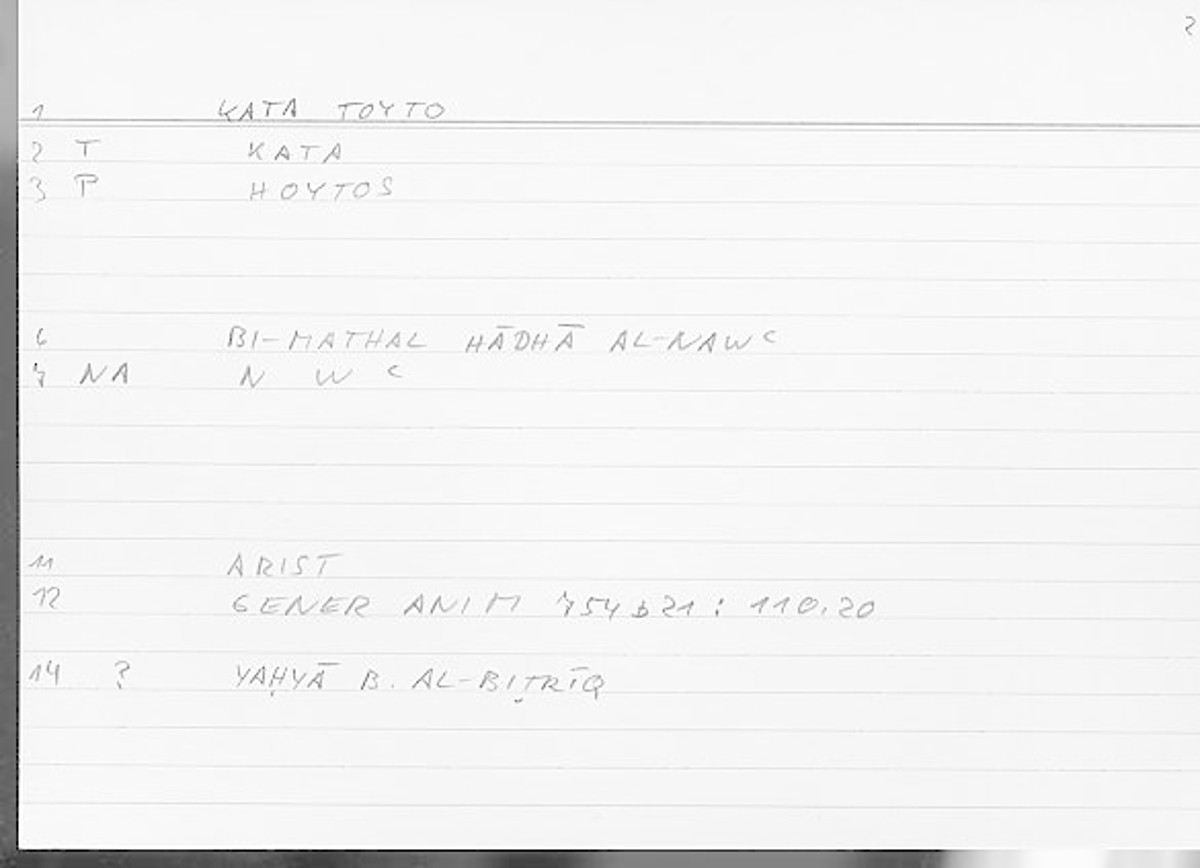 2
1 KATA TOYTO
2 T KATA
3 P HOYTOS
6 BI-MATHAL HĀDHĀ AL-NAWC
7 NA N W C
11 ARIST
12 GENER ANIM 754b21 : 110.20
14 ? YAḤYĀ B. AL-BIṬRĪQ